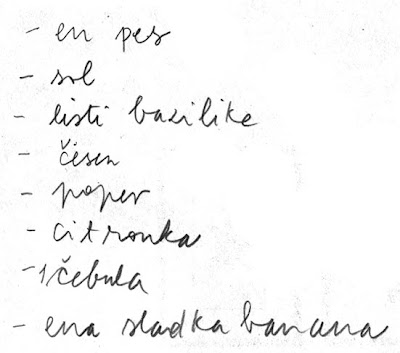 - en pes
- sol
- listi bazilike
- česen
- poper
- citronka
- 1 čebula
- ena sladka banana